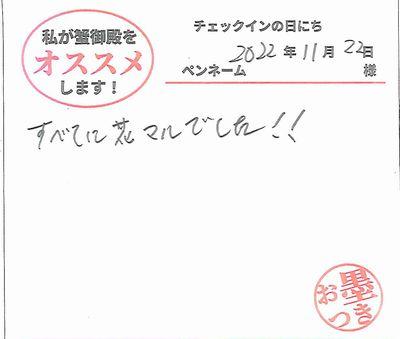 私が蟹御殿を
オススメ
します！
チェックインの日にち
2022年11月22日
ペンネーム 様
すべてに花マルでした!!
お墨つき